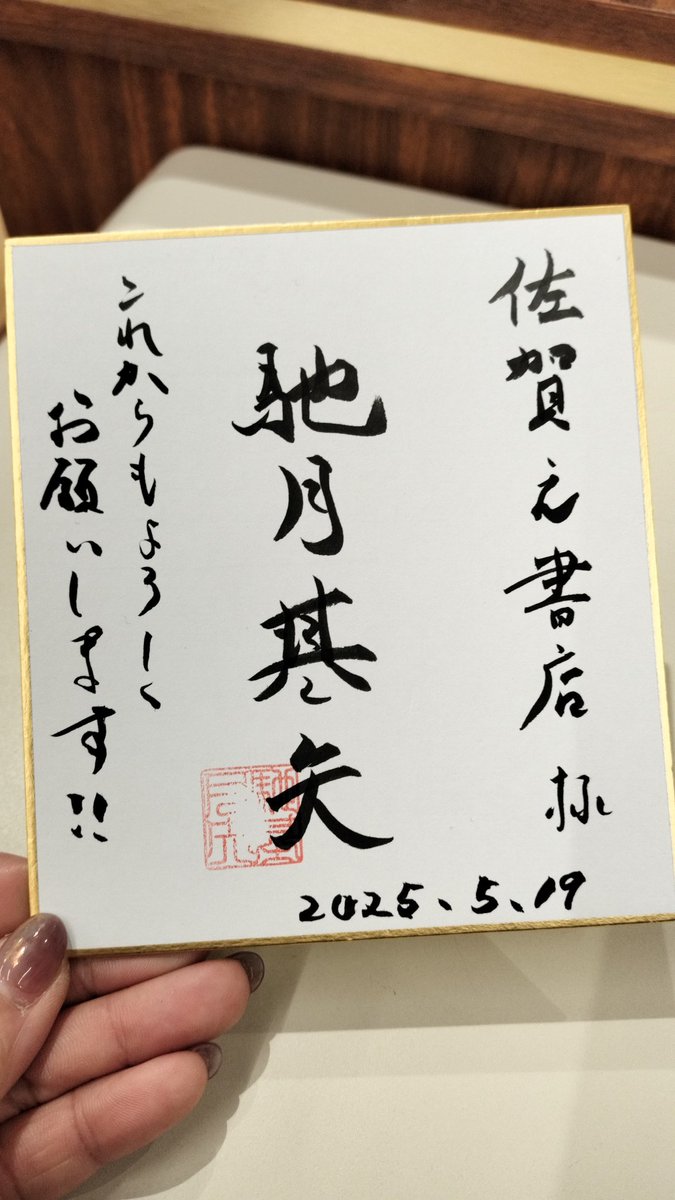 佐賀之書店様
馳月基矢
2025.5.19
これからもよろしく
お願いします!!